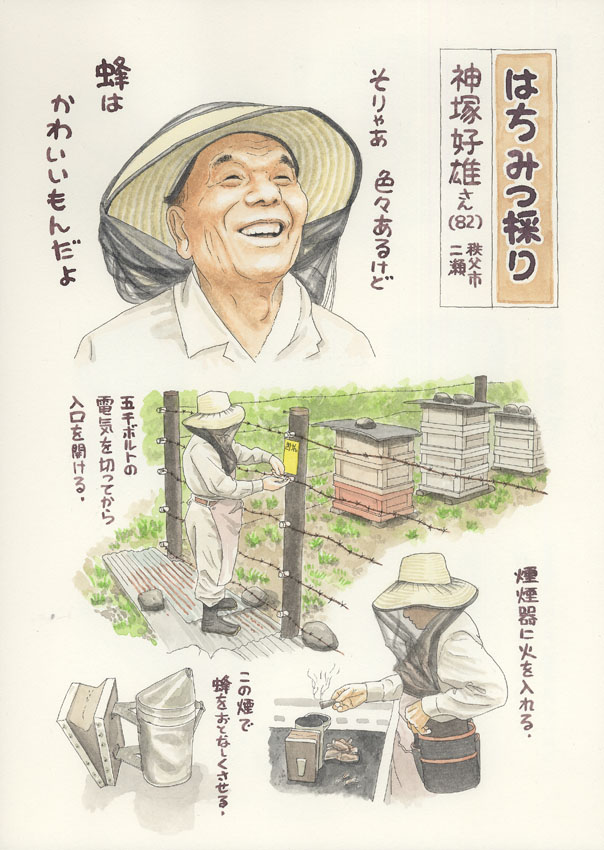 はちみつ採り
神塚好雄さん(82)
秩父市
二瀬
そりゃあ 色々あるけど
蜂は
かわいいもんだよ
五千ボルトの
電気を切ってから
入口を開ける。
燻煙器に火を入れる。
この煙で
蜂をおとなしくさせる。